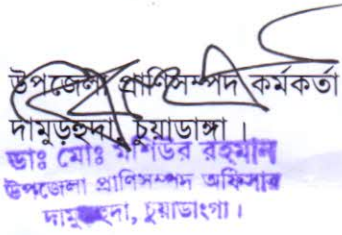 উপজেলা প্রাণিসম্পদ কর্মকর্তা
দামুড়হুদা, চুয়াডাঙ্গা ।
ডাঃ মোঃ মশিউর রহমান
উপজেলা প্রাণিসম্পদ অফিসার
দামুড়হুদা, চুয়াডাংগা ।